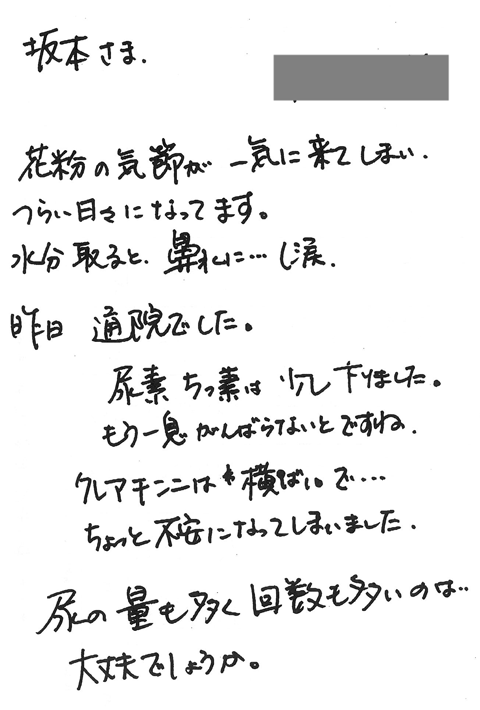 坂本さま.
花粉の気節が 一気に来てしまい.
つらい日々になってます。
水分取ると、鼻水に…(涙.
昨日 通院でした。
尿素ちっ素は 少し下りました。
もう一息 がんばらないとですね.
クレアチンニは 横ばいで…
ちょっと不安になってしまいました.
尿の量も多く 回数も多いのは…
大丈夫でしょうか。